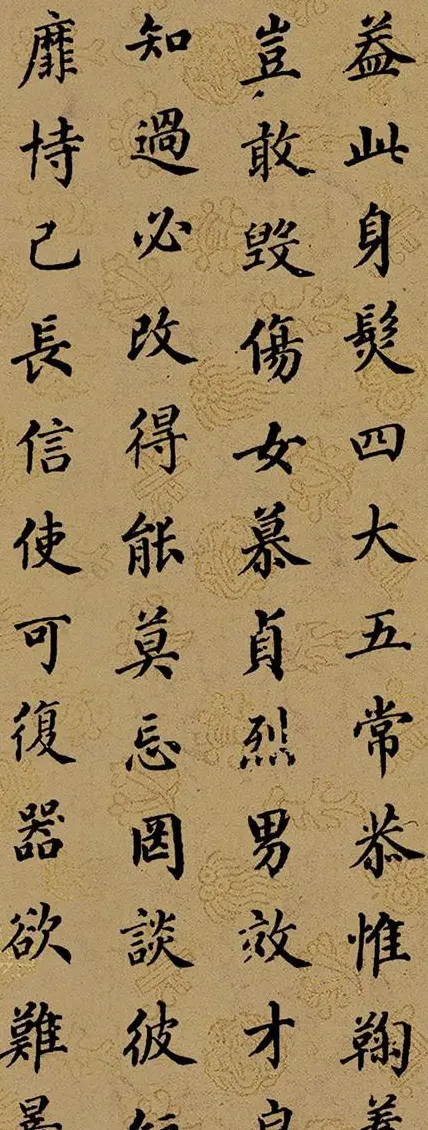 蓋此身髮四大五常恭惟鞠
豈敢毀傷女慕貞烈男效才
知過必改得能莫忘罔談彼
靡恃己長信使可復器欲難